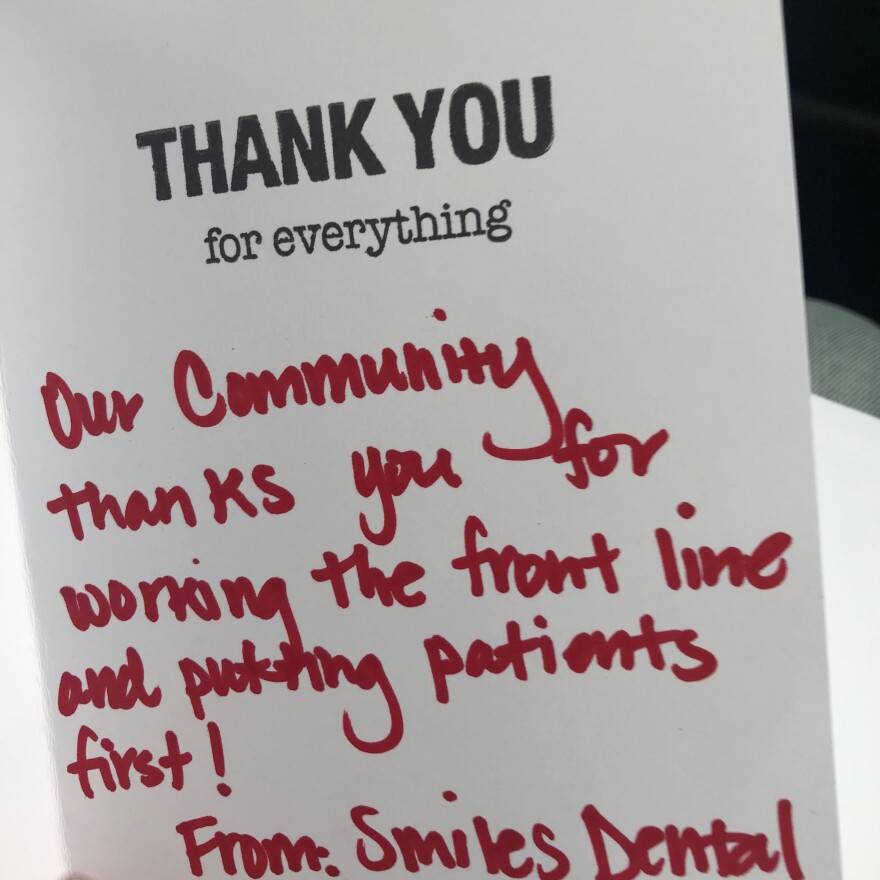 THANK YOU
for everything
Our Community
thanks you for
working the front line
and putting patients
first!
From: Smiles Dental